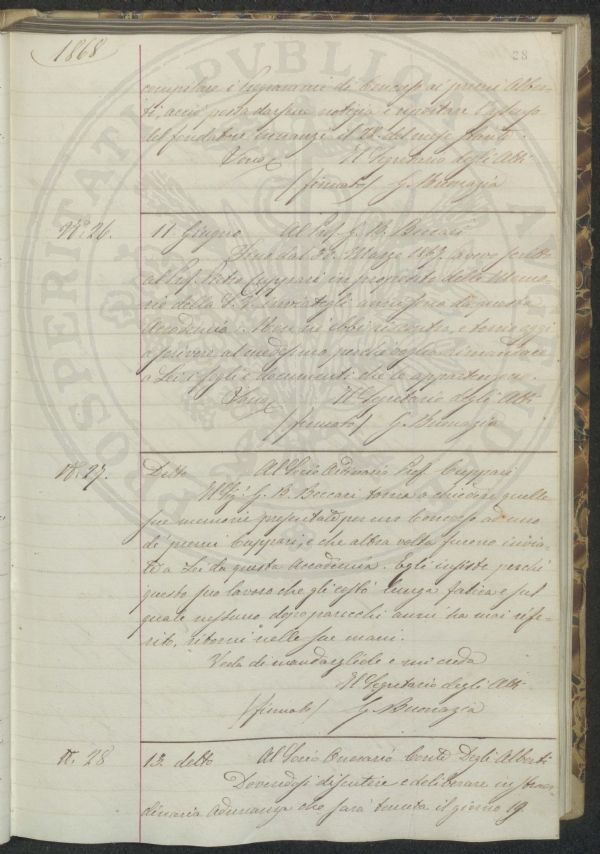 1868
28
compilare i Programmi di Concorso ai premi Alber-
ti, acciò possa darsene notizia e riportare l'assenso
del fondatore innanzi il 28 del mese
Suo Il Segretario degli Atti
(firmato) G. Buonazia
N.º 26. 11 Giugno Al Prof. G. B. Beccari
Fino dal 22 Marzo 1867 avevo scritto
al Prof. Pietro Cuppari in proposito delle Memo-
rie della S. V. inviategli ancor prima da questa
Accademia. Non ne ebbi riscontro, e torno oggi
a scrivere al medesimo perchè voglia rimandare
a Lei i fogli e documenti che le appartengono.
Il Segretario degli Atti
(firmato) G. Buonazia
N. 27. Detto Al Socio Ordinario Prof. Cuppari
Il Sig. G. B. Beccari torna a chiedere quelle
sue memorie presentate per un Concorso ad uno
di premi Cuppari, e che altra volta furono invia-
te a Lei da questa Accademia. Egli insiste perchè
questo suo lavoro che gli costò lunga fatica e sul
quale nessuno dopo parecchi anni ha mai rife-
rito, ritorni nelle sue mani.
Veda di mandargliele e mi creda
Il Segretario degli Atti
(firmato) G. Buonazia
N. 28 13. detto Al Socio Onorario Conte Degli Alberti
Dovendosi discutere e deliberare in straor-
dinaria Adunanza che sarà tenuta il giorno 19